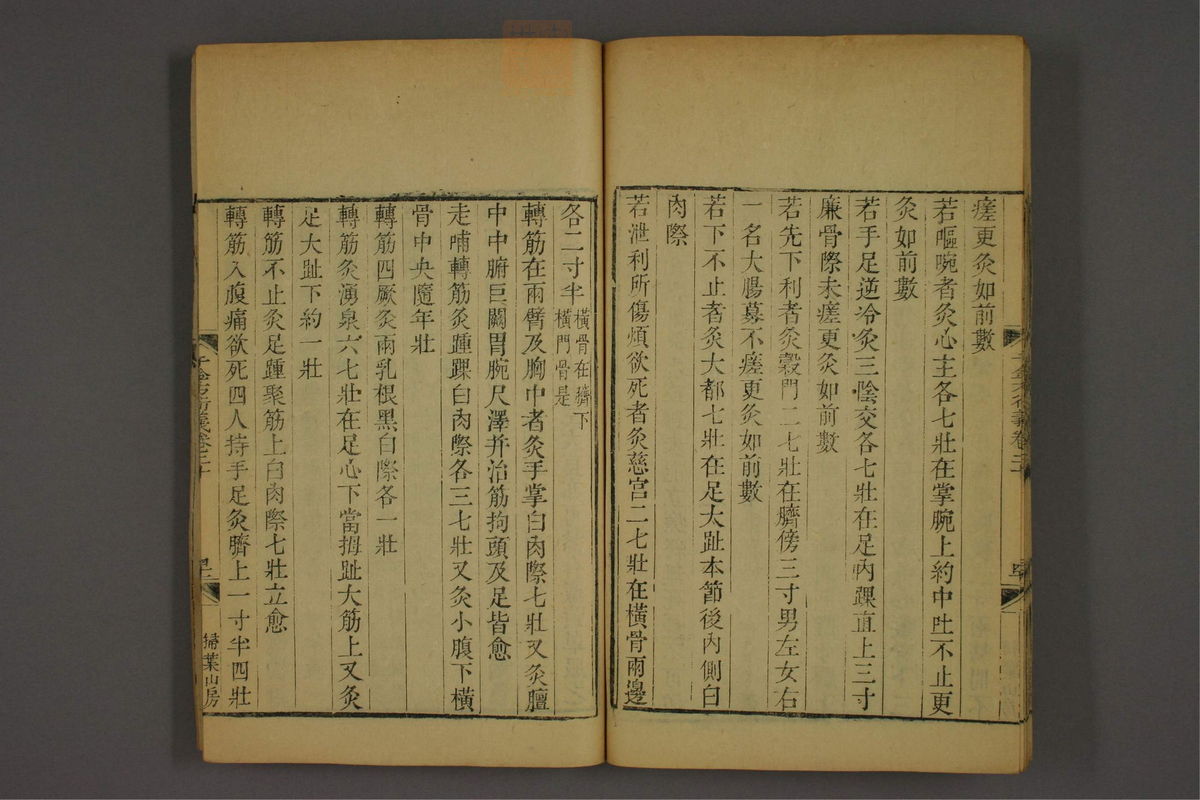 瘥更灸如前數
若嘔啘者灸心主各七壯在掌腕上約中吐不止更
灸如前數
若手足逆冷灸三陰交各七壯在足內踝直上三寸
廉骨際未瘥更灸如前數
若先下利者灸穀門二七壯在臍傍三寸男左女右
一名大腸募不瘥更灸如前數
若下不止者灸大都七壯在足大趾本節後內側白
肉際
若泄利所傷煩欲死者灸慈宮二七壯在橫骨兩邊
各二寸半橫骨在臍下
橫門骨是
轉筋在兩臂及胸中者灸手掌白肉際七壯又灸膻
中中腑巨闕胃腕尺澤并治筋拘頭及足皆愈
走哺轉筋灸踵踝白肉際各三七壯又灸小腹下橫
骨中央隨年壯
轉筋四厥灸兩乳根黑白際各一壯
轉筋灸湧泉六七壯在足心下當拇趾大筋上又灸
足大趾下約一壯
轉筋不止灸足踵聚筋上白肉際七壯立愈
轉筋入腹痛欲死四人持手足灸臍上一寸半四壯
千金方衍義卷二十
掃葉山房